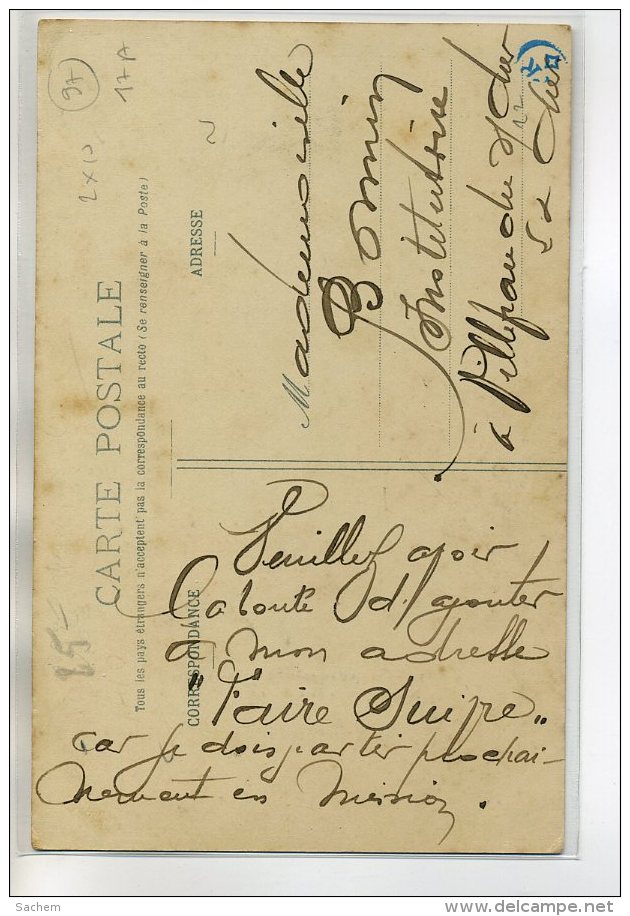 CARTE POSTALE
Tous les pays étrangers n'acceptent pas la correspondance au recto (Se renseigner à la Poste)
CORRESPONDANCE
ADRESSE
Veuillez avoir
la bonté d'ajouter
à mon adresse
"Faire Suivre"
car je dois partir prochai-
nement en mission.
Mademoiselle
Bonnin
Institutrice
à Villefranche s/ Cher
97
17A
2x10
85-
Sachem
delcampe.net